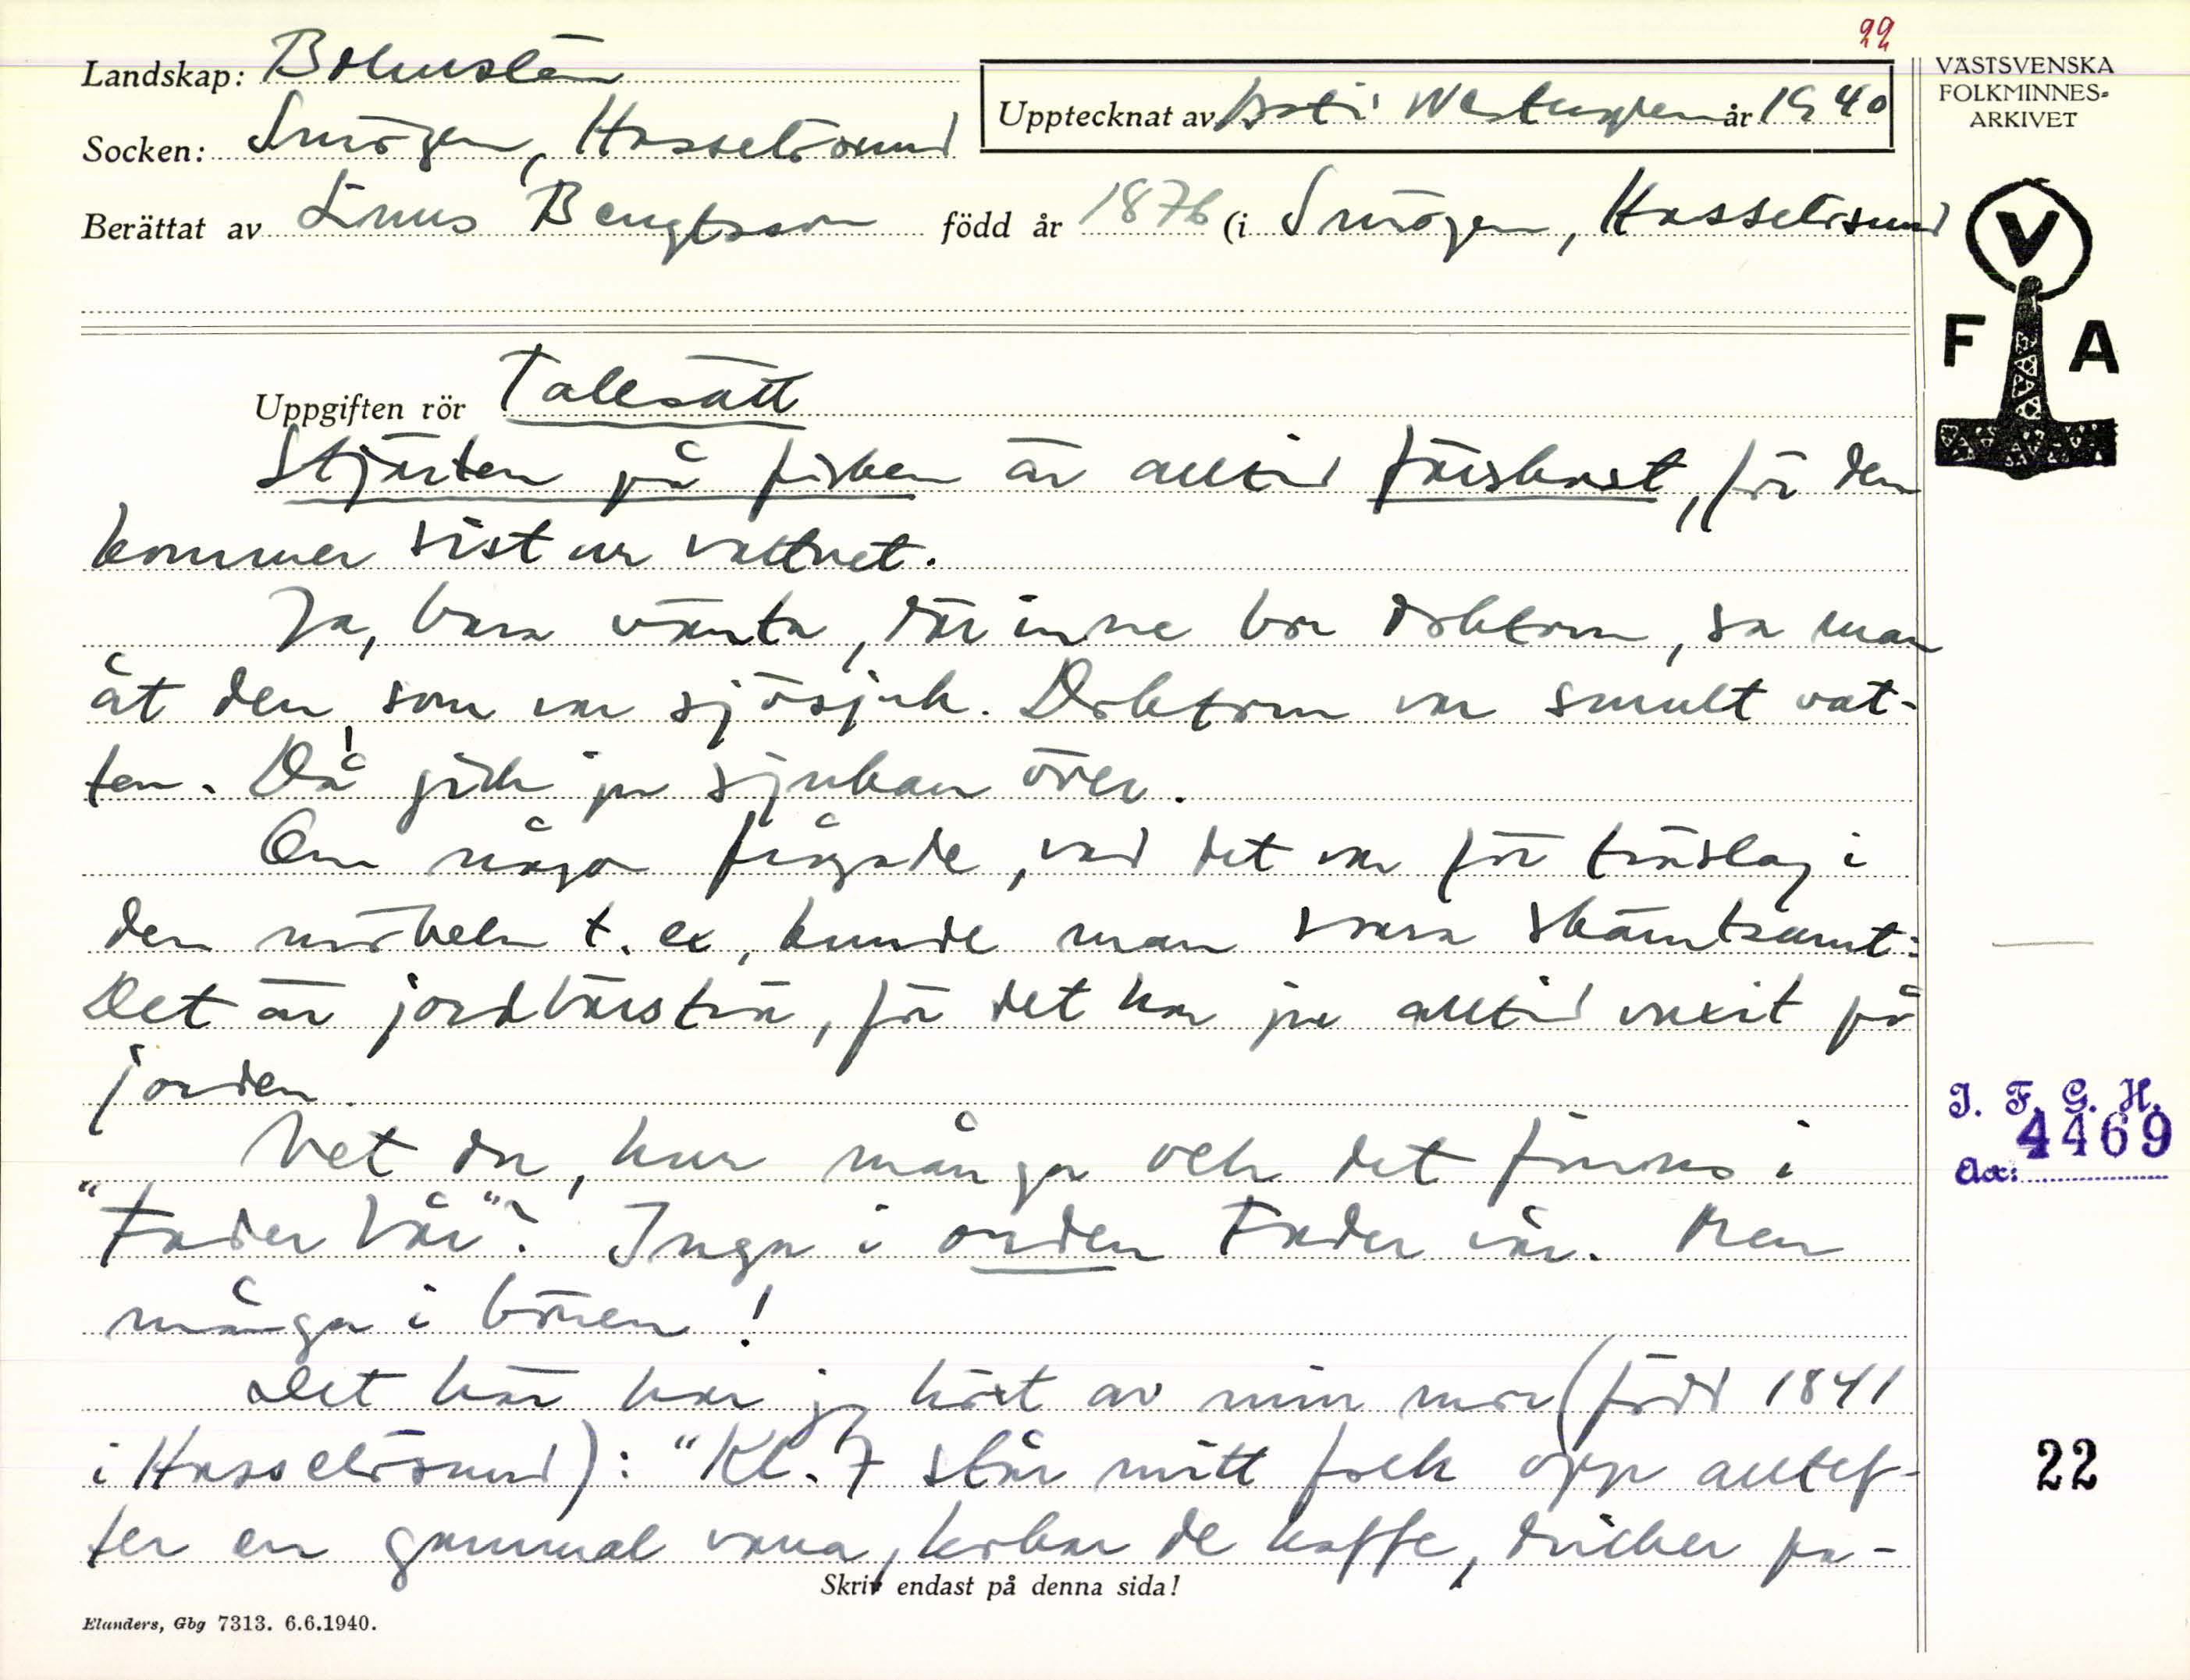 22
Landskap: Bohuslän
Upptecknat av Westergren år 1940
VÄSTSVENSKA
FOLKMINNES-
ARKIVET
Socken: Smögen, Hasselösund
Berättat av Linus Bengtsson född år 1876 (i Smögen, Hasselösund
V
F A
Uppgiften rör Talesätt
Stjärten på fisken är alltid färskast, för den
kommer sist ur vattnet.
Ja, bara vänta, där inne bor doktorn, sa man
åt den, som var sjösjuk. Doktorn var smult vat-
ten. Då gick ju sjukan över.
Om någon frågade, vad det var för träslag i
den möbeln t. ex, kunde man svara skämtsamt:
Det är jordbärsträ, för det har ju alltid vaxit på
jorden.
Vet du, hur många och det finns i
"Fader Vår"? Inga i orden Fader vår. Men
många i bönen!
Det här har jag hört av min mor (född 1841
i Hasselösund): "Kl. 7 står mitt folk opp alltef-
ter en gammal vana, kokar de kaffe, dricker på-
I. F. G. H.
4469
Acc:
22
Skriv endast på denna sida!
Elanders, Gbg 7313. 6.6.1940.